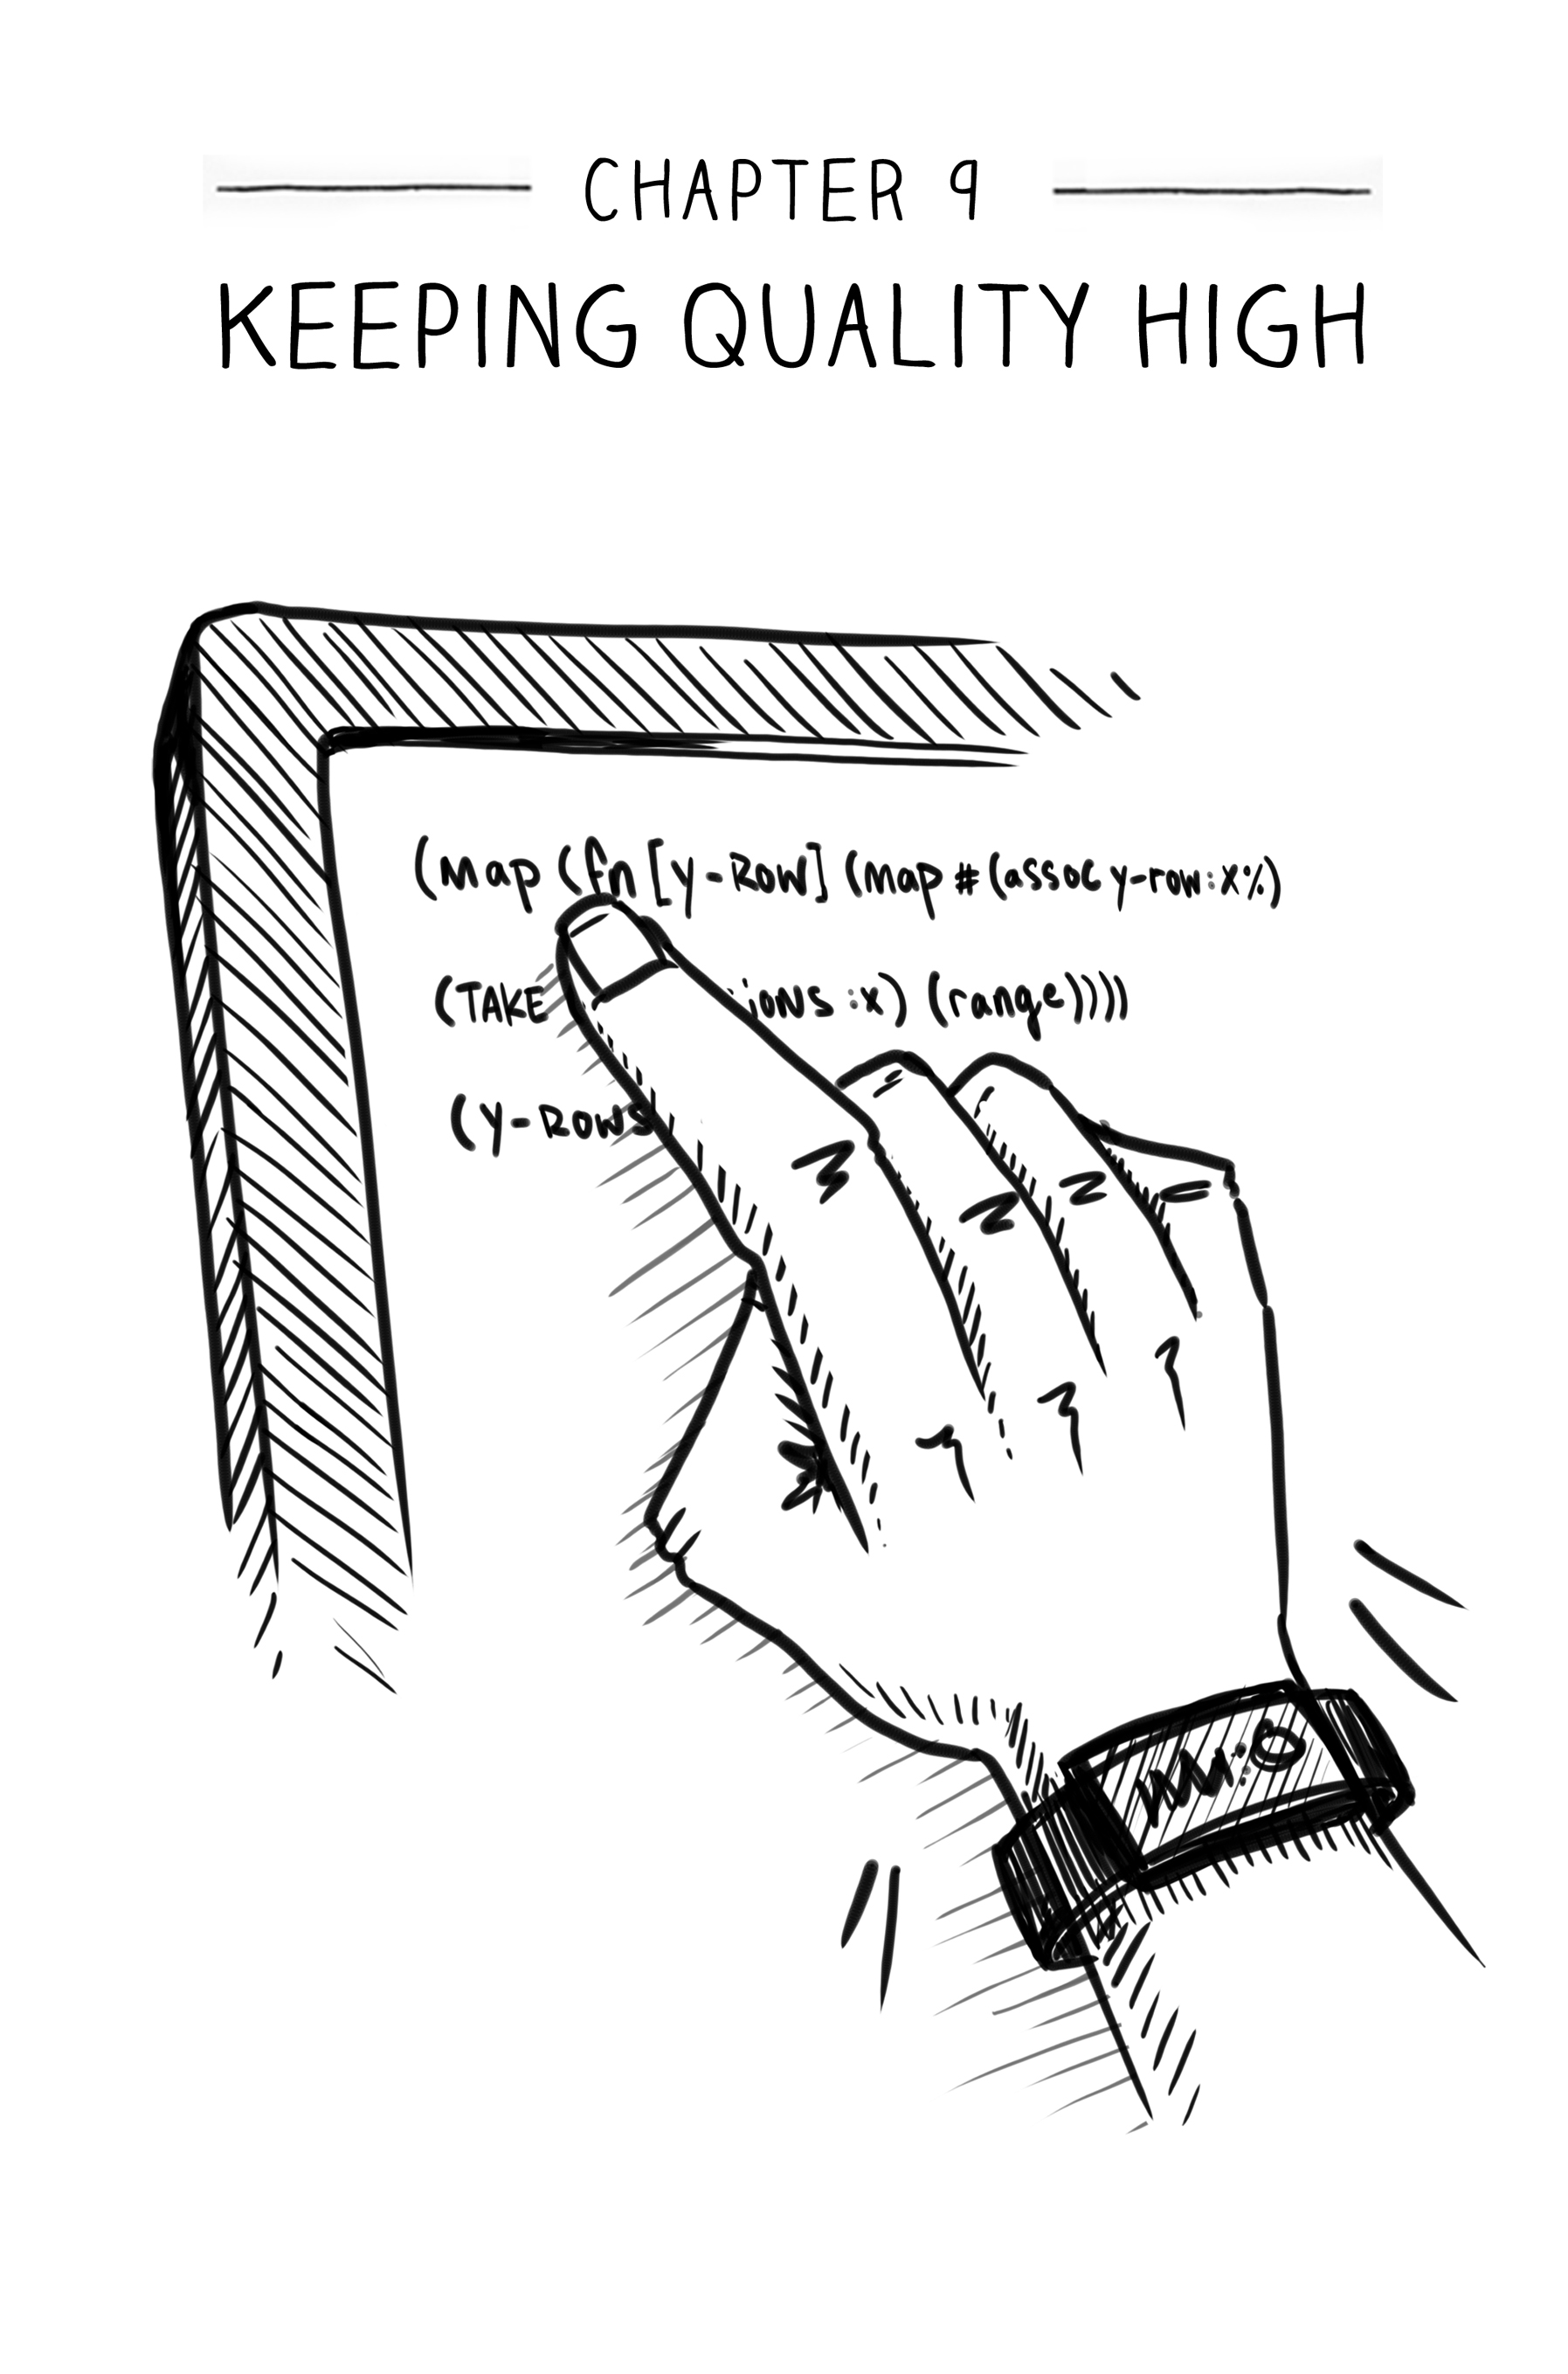 CHAPTER 9
KEEPING QUALITY HIGH
(map (fn [y-Row] (map # (assoc y-row :x %)
(TAKE ions :x) (range))))
(Y-ROWS